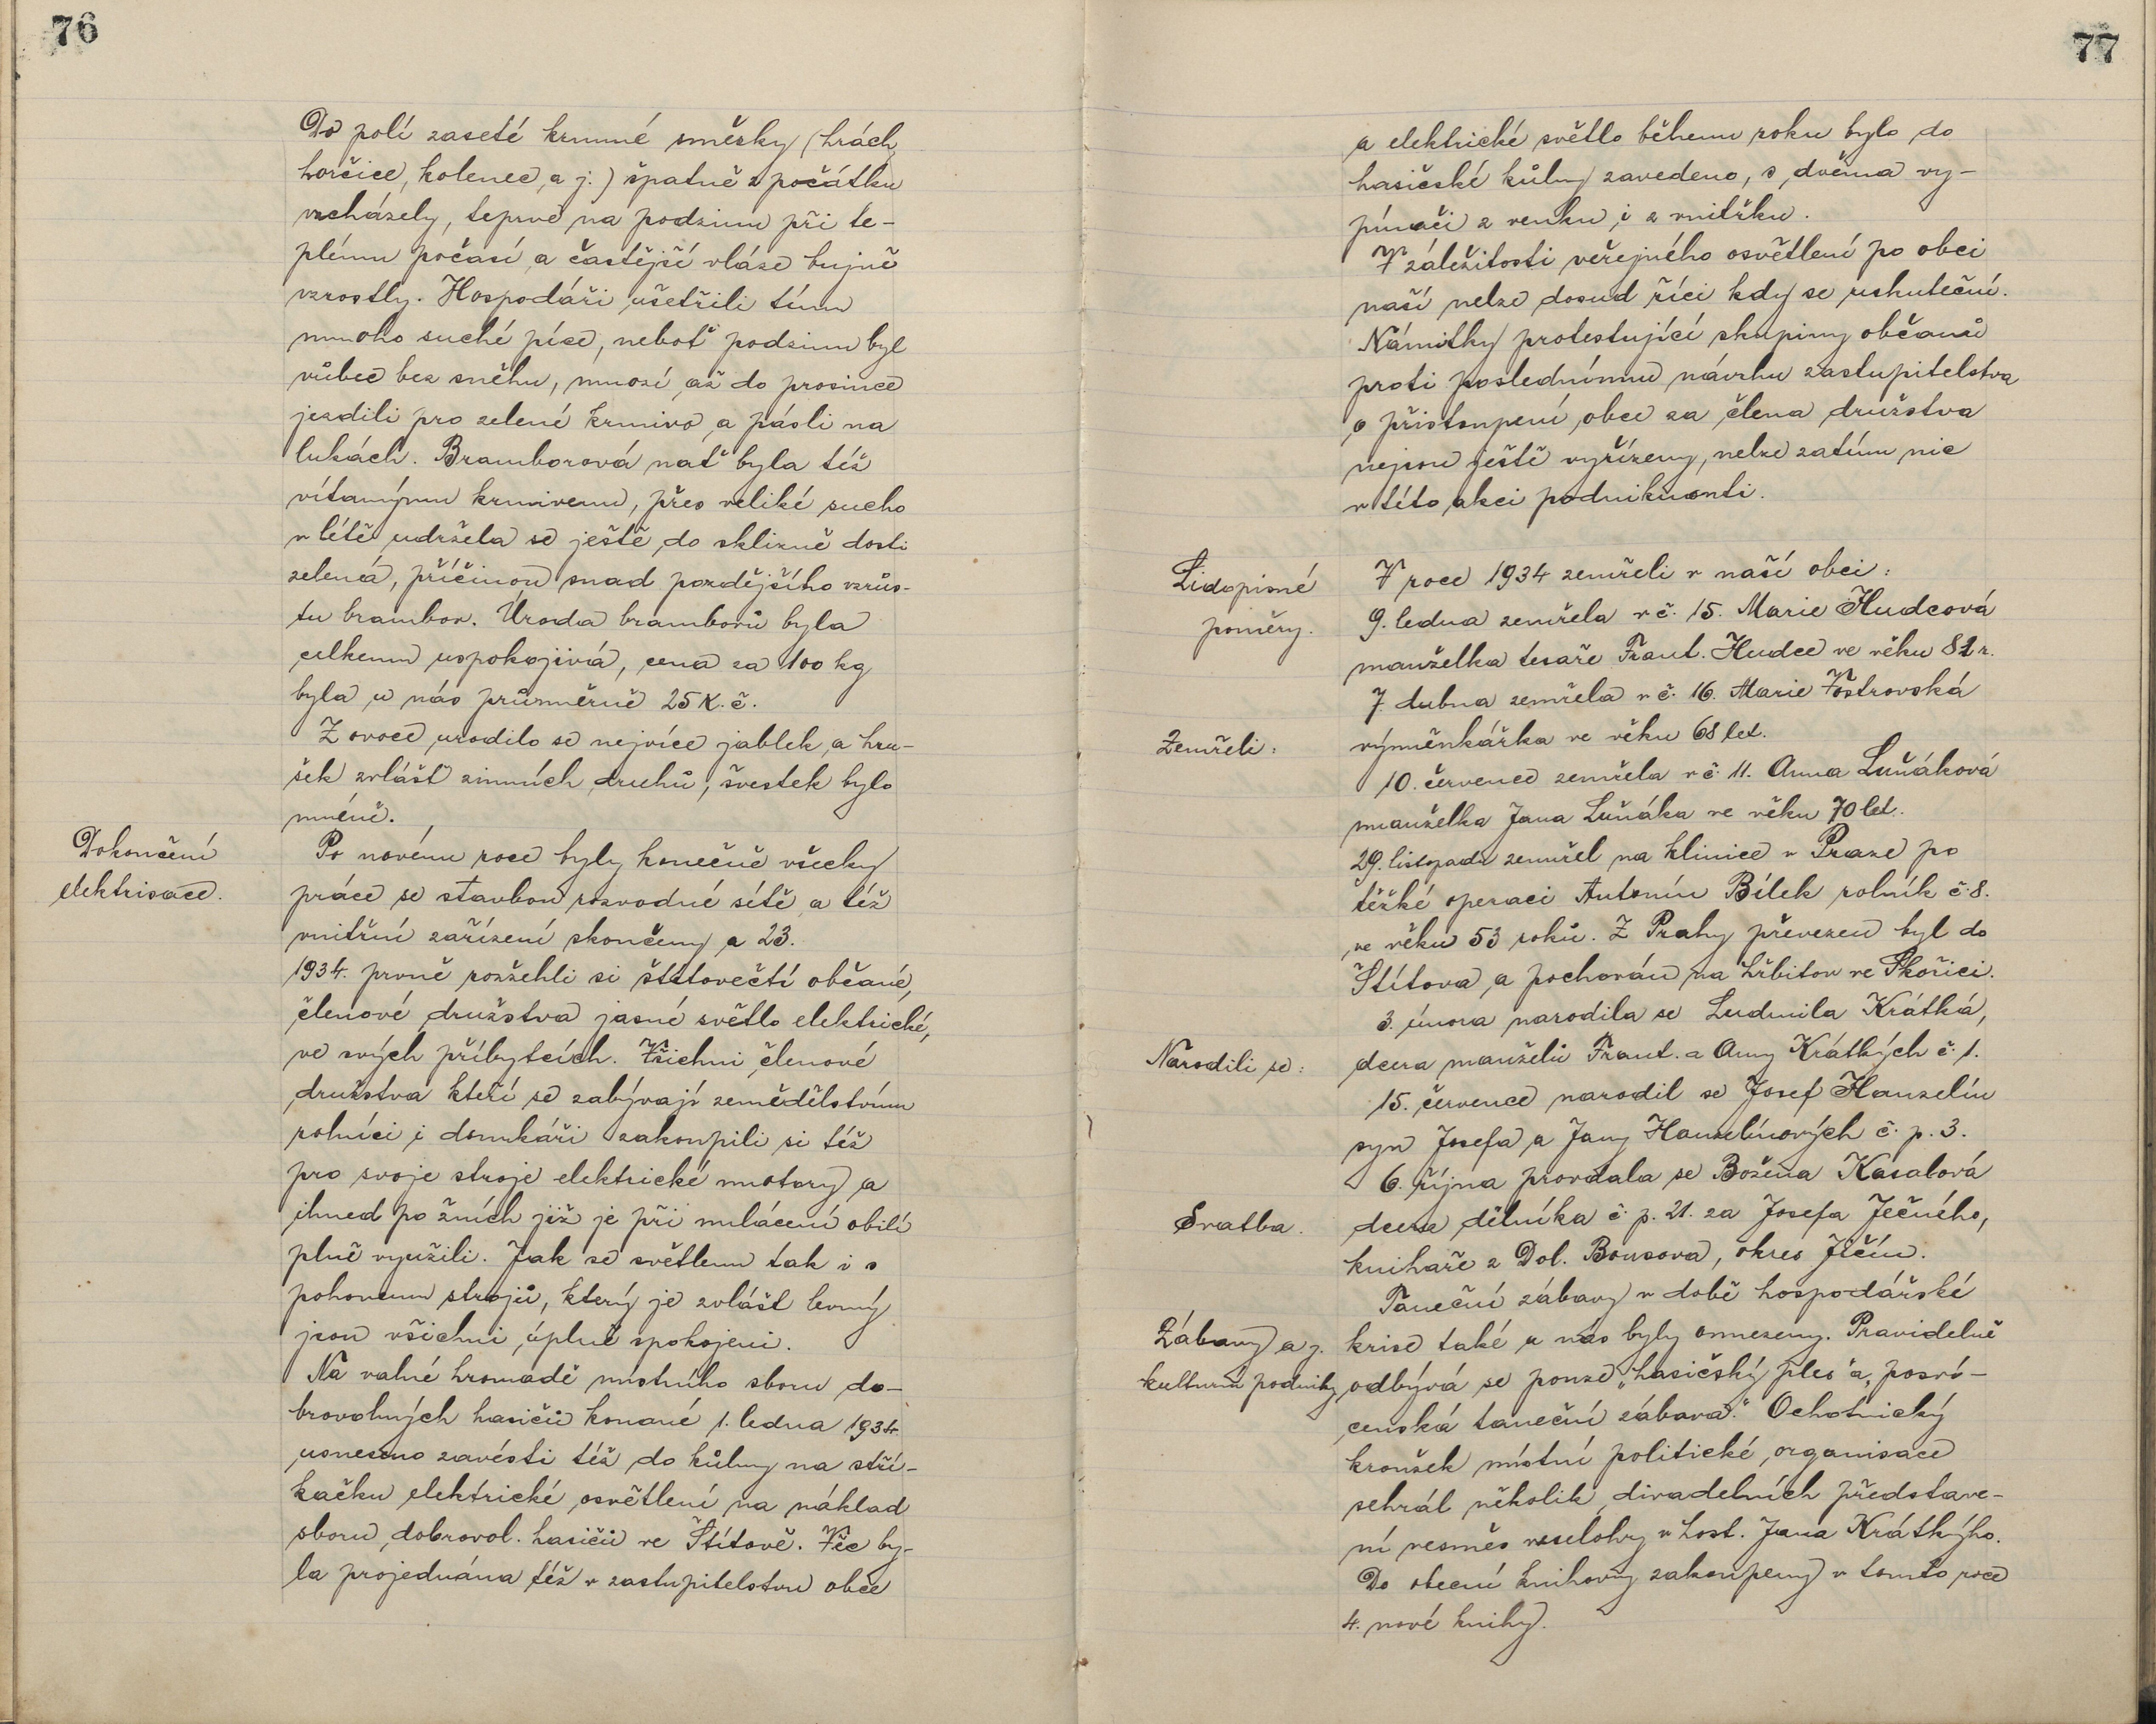 76
Do polí zaseté krmné směsky (hrách,
hořčice, kolenec, a j.) špatně z počátku
vzcházely, teprve na podzim při te-
plému počasí a častější vláze bujně
vzrostly. Hospodáři ušetřili tím
mnoho suché píce, neboť podzim byl
vůbec bez sněhu, mnozí až do prosince
jezdili pro zelené krmivo a pásli na
lukách. Bramborová nať byla též
vítaným krmivem, přes veliké sucho
v létě udržela se ještě do sklizně dosti
zelená, příčinou snad pozdějšího vzrůs-
tu brambor. Úroda bramborů byla
celkem uspokojivá, cena za 100 kg
byla u nás průměrně 25 K.č.
Z ovoce urodilo se nejvíce jablek, a hru-
šek zvlášť zimních druhů, švestek bylo
méně.
Dokončení
elektrisace.
Po novém roce byly konečně všecky
práce se stavbou rozvodné sítě a též
vnitřní zařízení skončeny a 23.
1934. prvně rozžehli si štítovečtí občané,
členové družstva jasné světlo elektrické,
ve svých příbytcích. Všichni členové
družstva kteří se zabývají zemědělstvím
rolníci i domkáři zakoupili si též
pro svoje stroje elektrické motory a
ihned po žních již je při mlácení obilí
plně využili. Jak se světlem tak i s
pohonem strojů, který je zvlášt levný
jsou všichni úplně spokojeni.
Na valné hromadě místního sboru do-
brovolných hasičů konané 1. ledna 1934.
usneseno zavésti též do kůlny na stří-
kačku elektrické osvětlení na náklad
sboru dobrovol. hasičů ve Štítově. Věc by-
la projednána též v zastupitelstvu obce
77
a elektrické světlo během roku bylo do
hasičské kůlny zavedeno, s dvěma vy-
pínači z venku i z vnitřku.
V záležitosti veřejného osvětlení po obci
naší nelze dosud říci kdy se uskuteční.
Námitky protestující skupiny občanů
proti poslednímu návrhu zastupitelstva
o přistoupení obce za člena družstva
nejsou ještě vyřízeny, nelze zatím nic
v této akci podniknouti.
Lidopisné
poměry.
V roce 1934 zemřeli v naší obci:
9. ledna zemřela v č. 15. Marie Hudcová
manželka tesaře Frant. Hudce ve věku 82 r.
7. dubna zemřela v č. 16. Marie Vostrovská
Zemřeli:
výměnkářka ve věku 68 let.
10. července zemřela v č. 11. Anna Luňáková
manželka Jana Luňáka ve věku 70 let.
29. listopadu zemřel na klinice v Praze po
těžké operaci Antonín Bílek rolník č. 8.
ve věku 53 roků. Z Prahy převezen byl do
Štítova a pochován na hřbitov ve Skořici.
3. února narodila se Ludmila Krátká,
Narodili se:
dcera manželů Frant. a Anny Krátkých č. 1.
15. července narodil se Josef Hanzelín
syn Josefa a Jany Hanzelínových č. p. 3.
6. října provdala se Božena Kasalová
Svatba.
dcera dělníka č. p. 21. za Josefa Ječného,
knihaře z Dol. Bousova, okres Jičín.
Taneční zábavy v době hospodářské
Zábavy a j.
kulturní podniky
krise také u nás byly omezeny. Pravidelně
odbývá se pouze „hasičský ples“ a „posví-
censká taneční zábava.“ Ochotnický
kroužek místní politické organisace
sehrál několik divadelních představe-
ní vesměs veselohry v host. Jana Krátkýho.
Do obecní knihovny zakoupeny v tomto roce
4. nové knihy.